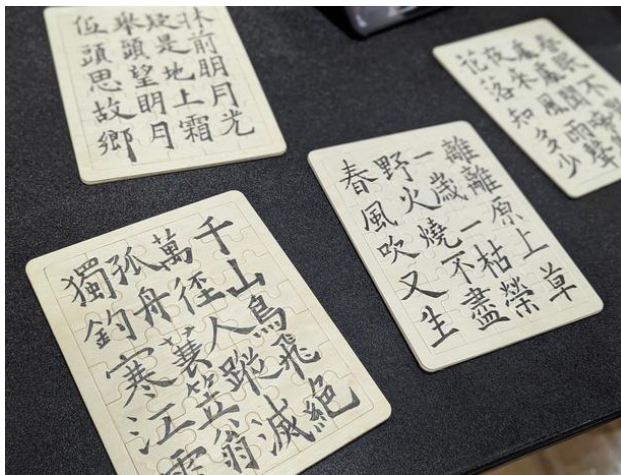 前明月光
疑是地上霜
舉頭望明月
低頭思故鄉
春眠不
處處聞啼
夜來風雨聲
花落知多少
離離原上草
一歲一枯榮
野火燒不盡
春風吹又生
千山鳥飛絕
萬徑人蹤滅
孤舟蓑笠翁
獨釣寒江雪